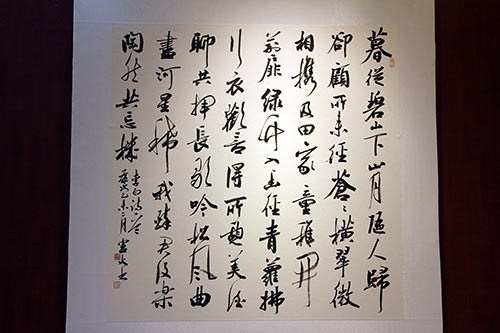 暮從碧山下山月隨人歸
卻顧所来徑蒼〻橫翠微
相攜及田家童稚開
荊扉綠竹入幽徑青蘿拂
行衣歡言得所憩美酒
聊共揮長歌吟松風曲
盡河星稀我醉君復樂
陶然共忘機
李白詩一首
乙未二月